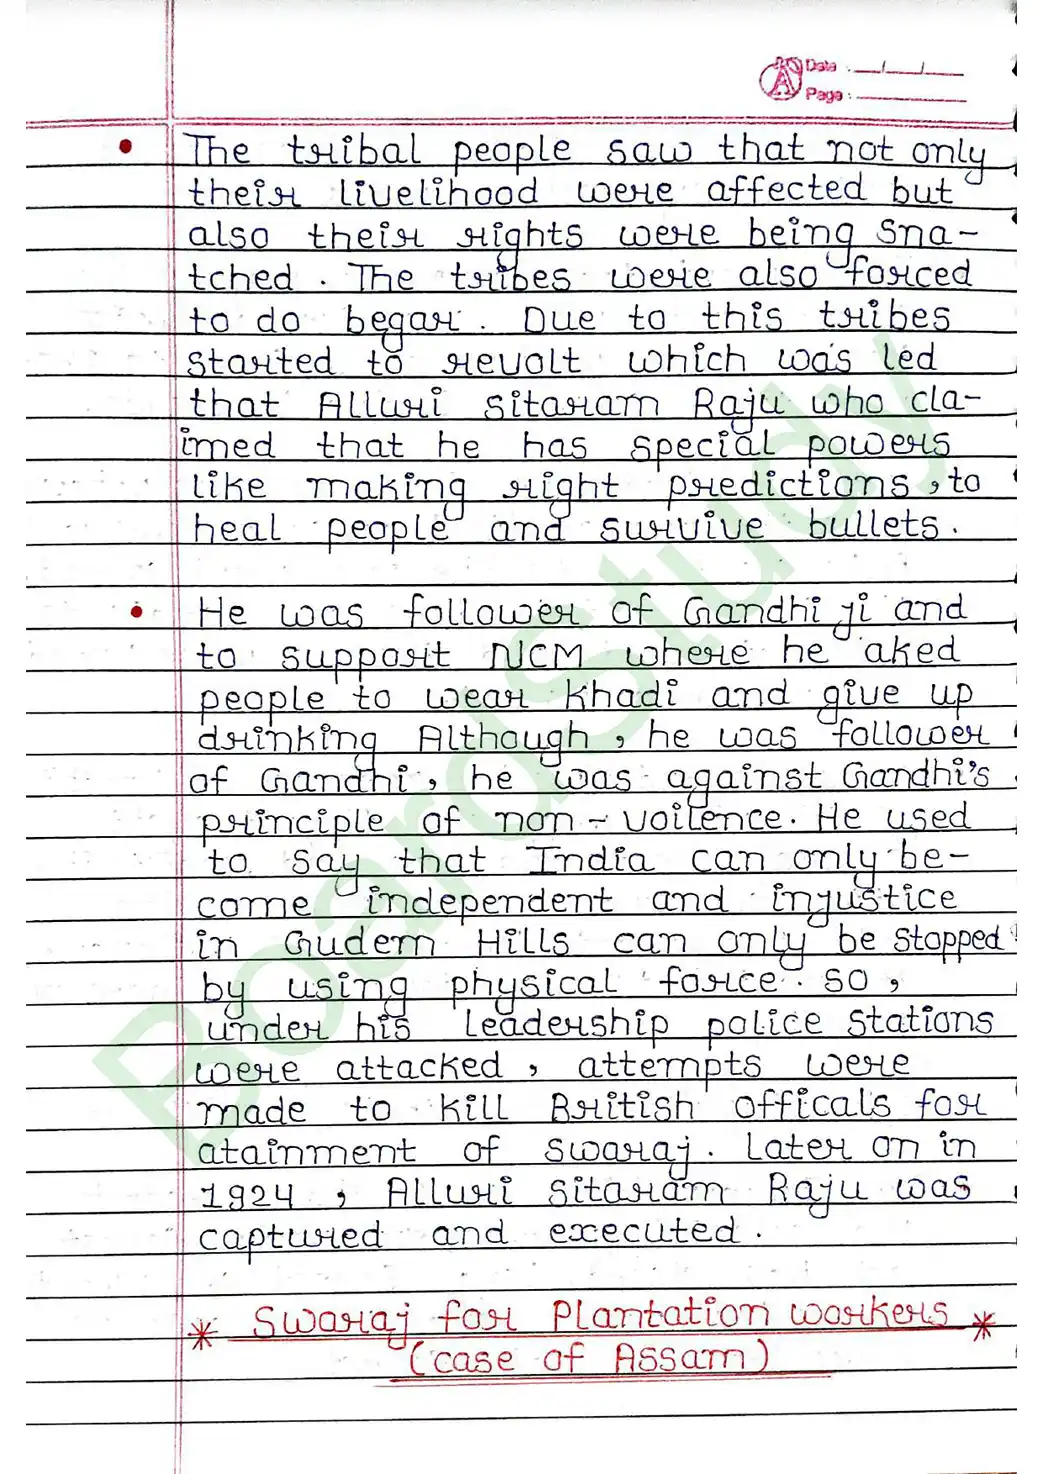 Date : __/__/__
Page : ______
• The tribal people saw that not only
their livelihood were affected but
also their rights were being sna-
tched. The tribes were also forced
to do begar. Due to this tribes
started to revolt which was led
that Alluri sitaram Raju who cla-
imed that he has special powers
like making right predictions, to
heal people and survive bullets.
• He was follower of Gandhi ji and
to support NCM where he aked
people to wear khadi and give up
drinking Although, he was follower
of Gandhi, he was against Gandhi's
principle of non-voilence. He used
to say that India can only be-
come independent and injustice
in Gudem Hills can only be stopped
by using physical force. so,
under his leadership police stations
were attacked, attempts were
made to kill British officals for
atainment of swaraj. Later on in
1924, Alluri sitaram Raju was
captured and executed.
* Swaraj for Plantation workers *
(case of Assam)
BoardStudy